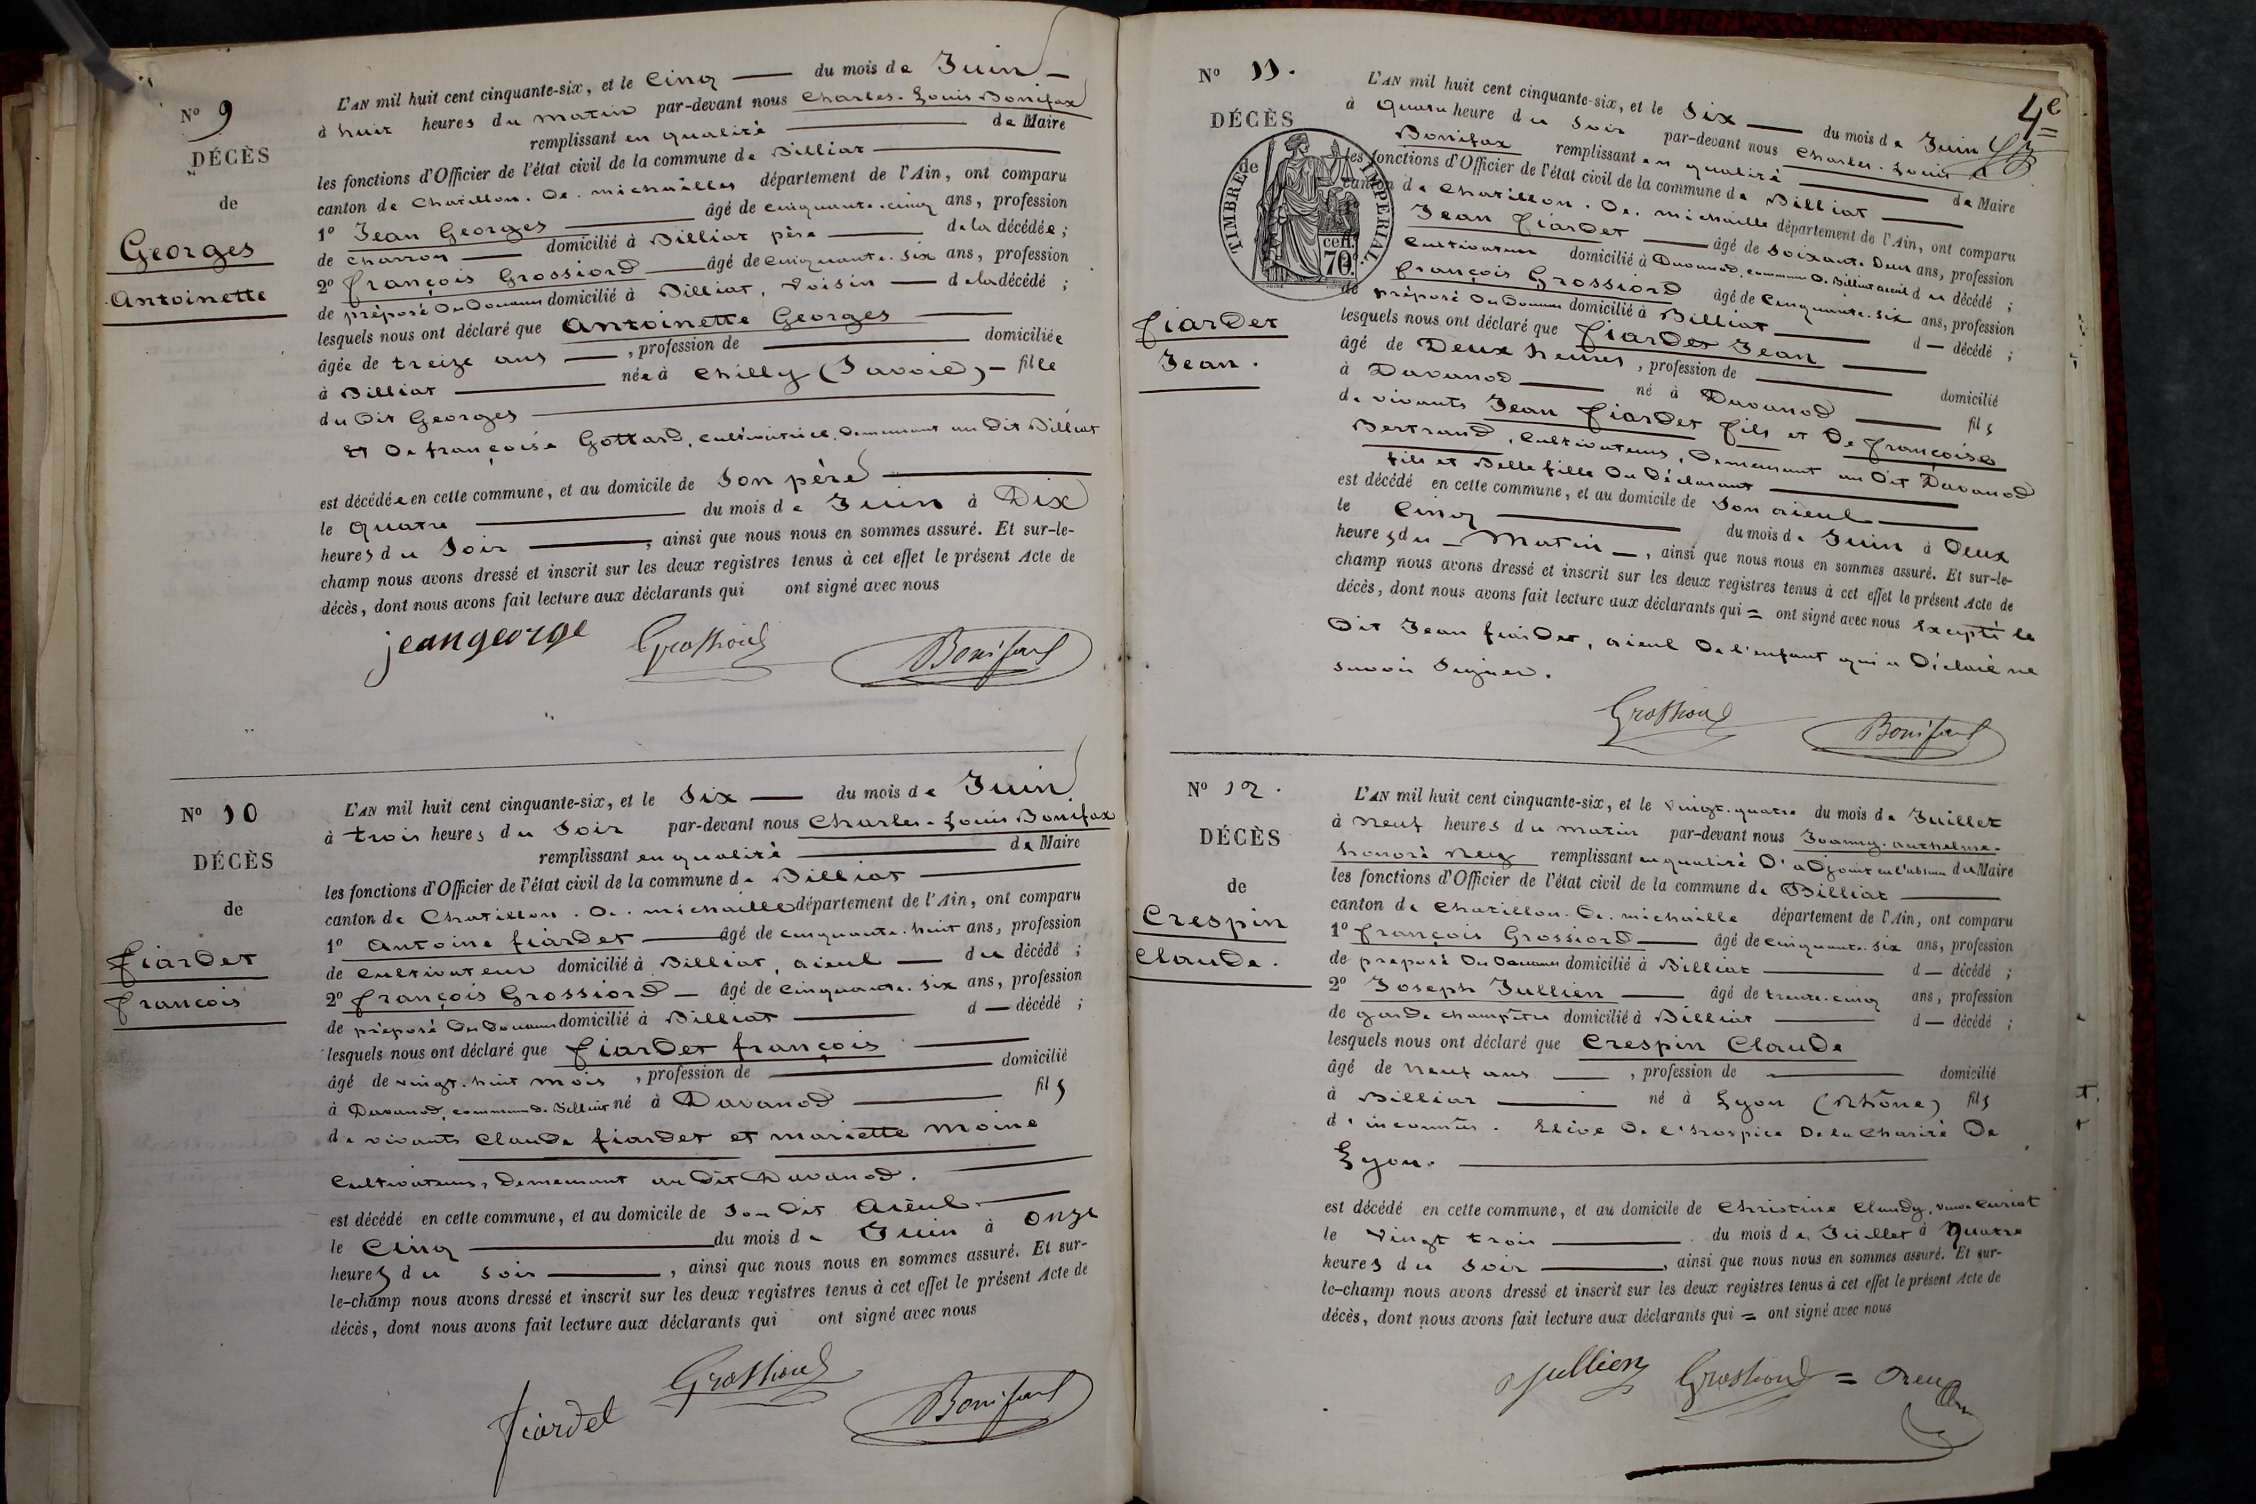 N° 9
DÉCÈS
de
Georges
Antoinette
L'AN mil huit cent cinquante-six, et le Cinq du mois de Juin
à huit heures du matin par-devant nous Charles-Louis Bonifax
remplissant en qualité de Maire
les fonctions d'Officier de l'état civil de la commune de Billiat
canton de Chatillon-de-michailles département de l'Ain, ont comparu
1° Jean Georges âgé de cinquante-cinq ans, profession
de charron domicilié à Billiat père de la décédée ;
2° françois Grossiord âgé de cinquante-six ans, profession
de préposé des Douanes domicilié à Billiat, voisin de la décédé ;
lesquels nous ont déclaré que Antoinette Georges
âgée de treize ans , profession de domiciliée
à Billiat née à Chilly (Savoie) fille
du dit Georges
Et de françoise Gottard, cultivatrice, demeurant au dit Billiat
est décédée en cette commune, et au domicile de Son père
le quatre du mois de Juin à Dix
heures du Soir , ainsi que nous nous en sommes assuré. Et sur-le-
champ nous avons dressé et inscrit sur les deux registres tenus à cet effet le présent Acte de
décès, dont nous avons fait lecture aux déclarants qui ont signé avec nous
jeangeorge Grossiord Bonifax
N° 10
DÉCÈS
de
fiardet
francois
L'AN mil huit cent cinquante-six, et le Six du mois de Juin
à trois heures du Soir par-devant nous Charles-Louis Bonifax
remplissant en qualité de Maire
les fonctions d'Officier de l'état civil de la commune de Billiat
canton de Chatillon-de-michaille département de l'Ain, ont comparu
1° Antoine fiardet âgé de cinquante-huit ans, profession
de Cultivateur domicilié à Billiat, aieul du décédé ;
2° françois Grossiord âgé de cinquante-six ans, profession
de préposé des Douanes domicilié à Billiat d décédé ;
lesquels nous ont déclaré que fiardet françois
âgé de vingt-huit mois , profession de domicilié
à Davanod, commune de Billiat né à Davanod fils
de vivants Claude fiardet et mariette moine
Cultivateurs, demeurant au dit Davanod.
est décédé en cette commune, et au domicile de Son dit Aieul
le Cinq du mois de Juin à onze
heures du soir , ainsi que nous nous en sommes assuré. Et sur-
le-champ nous avons dressé et inscrit sur les deux registres tenus à cet effet le présent Acte de
décès, dont nous avons fait lecture aux déclarants qui ont signé avec nous
fiardet Grossiord Bonifax
4e
N° 11.
DÉCÈS
de
TIMBRE IMPERIAL
70 cent.
fiardet
Jean.
L'AN mil huit cent cinquante-six, et le Six du mois de Juin
à quatre heure du Soir par-devant nous Charles-Louis
Bonifax remplissant en qualité de Maire
les fonctions d'Officier de l'état civil de la commune de Billiat
canton de Chatillon-de-michaille département de l'Ain, ont comparu
Jean fiardet âgé de soixante-deux ans, profession
Cultivateur domicilié à Davanod, commune de Billiat aieul du décédé ;
françois Grossiord âgé de Cinquante-six ans, profession
de préposé des Douanes domicilié à Billiat d décédé ;
lesquels nous ont déclaré que fiardet Jean
âgé de Deux heures , profession de domicilié
à Davanod né à Davanod fils
de vivants Jean fiardet fils et de françoise
Bertrand, Cultivateurs, Demeurant au dit Davanod
fils et Belle fille du Déclarant
est décédé en cette commune, et au domicile de Son aieul
le Cinq du mois de Juin à Deux
heures du Matin , ainsi que nous nous en sommes assuré. Et sur-le-
champ nous avons dressé et inscrit sur les deux registres tenus à cet effet le présent Acte de
décès, dont nous avons fait lecture aux déclarants qui = ont signé avec nous Excepté le
dit Jean fiardet, aieul de l'enfant qui a déclaré ne
savoir Signer.
Grossiord Bonifax
N° 12.
DÉCÈS
de
Crespin
Claude.
L'AN mil huit cent cinquante-six, et le vingt-quatre du mois de Juillet
à Neuf heures du matin par-devant nous Joanny-anthelme-
honoré Rey remplissant en qualité d'adjoint en l'absence du Maire
les fonctions d'Officier de l'état civil de la commune de Billiat
canton de Chatillon-de-michaille département de l'Ain, ont comparu
1° françois Grossiord âgé de cinquante-six ans, profession
de préposé des Douanes domicilié à Billiat d décédé ;
2° Joseph Jullien âgé de trente-cinq ans, profession
de garde champêtre domicilié à Billiat d décédé ;
lesquels nous ont déclaré que Crespin Claude
âgé de neuf ans , profession de domicilié
à Billiat né à Lyon (Rhône) fils
d'inconnus. Elève de l'hospice de la Charité de
Lyon.
est décédé en cette commune, et au domicile de Christine Claudy, veuve Curiat
le vingt trois du mois de Juillet à quatre
heures du Soir , ainsi que nous nous en sommes assuré. Et sur-
le-champ nous avons dressé et inscrit sur les deux registres tenus à cet effet le présent Acte de
décès, dont nous avons fait lecture aux déclarants qui = ont signé avec nous
Jullien Grossiord =